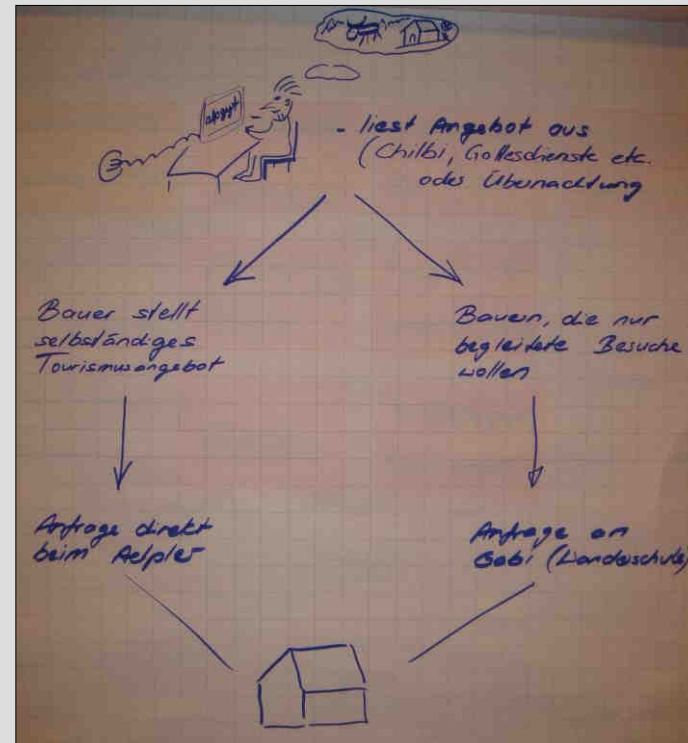 alpzyt
- liest Angebot aus
(Chilbi, Gottesdienste etc.
oder Übernachtung
Bauer stellt
selbständiges
Tourismusangebot
Bauern, die nur
begleitete Besuche
wollen
Anfrage direkt
beim Aelpler
Anfrage an
Gabi (Wanderschule)